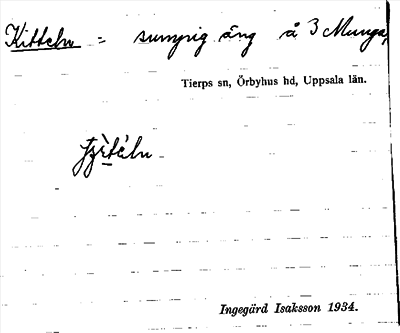 Kitteln = sumpig äng å 3 Munga,
Tierps sn, Örbyhus hd, Uppsala län.
Ingegärd Isaksson 1934.